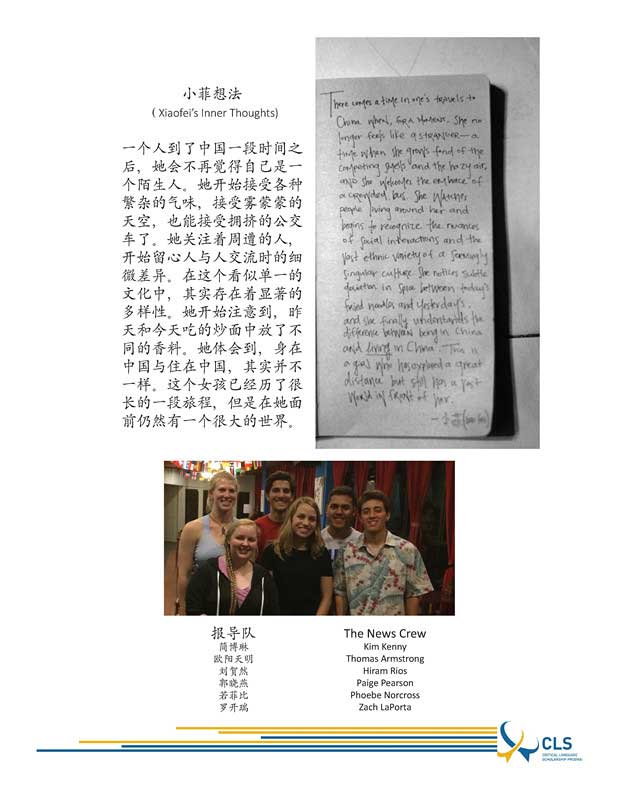 小菲想法
( Xiaofei's Inner Thoughts)
一个人到了中国一段时间之
后，她会不再觉得自己是一
个陌生人。她开始接受各种
繁杂的气味，接受雾蒙蒙的
天空，也能接受拥挤的公交
车了。她关注着周遭的人，
开始留心人与人交流时的细
微差异。在这个看似单一的
文化中，其实存在着显著的
多样性。她开始注意到，昨
天和今天吃的炒面中放了不
同的香料。她体会到，身在
中国与住在中国，其实并不
一样。这个女孩已经历了很
长的一段旅程，但是在她面
前仍然有一个很大的世界。
There comes a time in one's travels to
China when, for a moment, she no
longer feels like a STRANGER — a
time when she grows fond of the
competing smells and the hazy air,
and she welcomes the embrace of
a crowded bus. She watches
people living around her and
begins to recognize the nuances
of social interactions and the
vast ethnic variety of a seemingly
singular culture. She notices subtle
deviation in spice between today's
fried noodles and yesterday's.
and she finally understands the
difference between being in China
and living in China. This is
a girl who has explored a great
distance but still has a vast
world in front of her.
报导队
简博琳
欧阳天明
刘贺然
郭晓燕
若菲比
罗开瑞
The News Crew
Kim Kenny
Thomas Armstrong
Hiram Rios
Paige Pearson
Phoebe Norcross
Zach LaPorta
CLS
CRITICAL LANGUAGE
SCHOLARSHIP PROGRAM